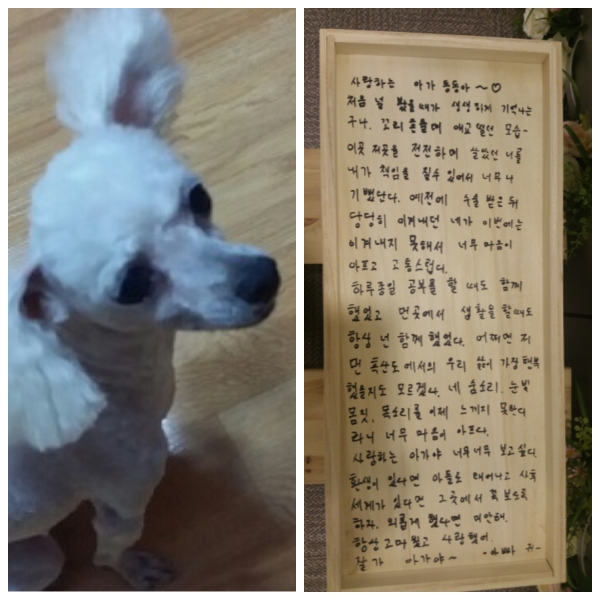 사랑하는 아가 통통아 ~♡
처음 널 봤을때가 생생하게 기억나는
구나. 꼬리 흔들며 애교 떨던 모습-
이곳 저곳을 전전하며 살았던 너를
내가 책임을 질수 있어서 너무나
기뻤단다. 예전에 수술 받은 뒤
당당히 이겨내던 네가 이번에는
이겨내지 못해서 너무 마음이
아프고 고통스럽다.
하루종일 공부를 할 때도 함께
했었고 먼곳에서 생활을 할때도
항상 넌 함께 했었다. 어쩌면 저
먼 흑산도에서의 우리 삶이 가장 행복
했을지도 모르겠다. 네 숨소리, 눈빛
몸짓, 목소리를 이제 느끼지 못한다
라니 너무 마음이 아프다.
사랑하는 아가야 너무너무 보고싶다.
환생이 있다면 아들로 태어나고 사후
세계가 있다면 그곳에서 꼭 보도록
하자. 외롭게 했다면 미안해.
항상 고마웠고 사랑했어.
잘가 아가야~ -아빠